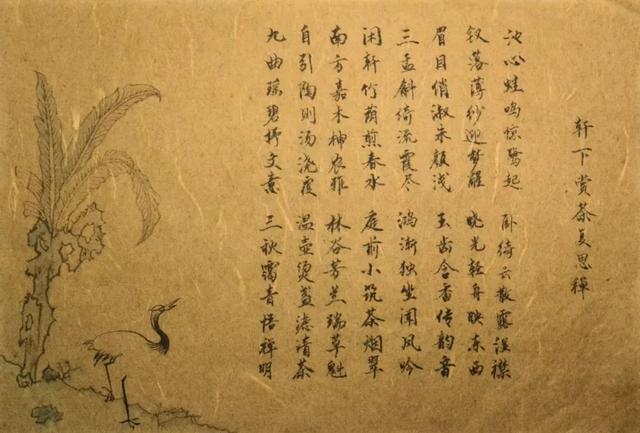 轩下赏茶夏思禅
池心蛙鸣惊鹭起 卧绮云散露湿襟
钗落薄纱迎梦醒 晓光轻舟映东西
眉目俏淑朱颜浅 玉齿含香传韵音
三盏斜倚流霞尽 鸿渐独坐闻风吟
闲轩竹荫煎春水 庭前小筑茶烟翠
南方嘉木神农雅 林谷芳兰瑞草魁
自引陶则汤浇覆 温壶烫盏滤清茶
九曲瑶碧抒文意 三秋霭青悟禅明